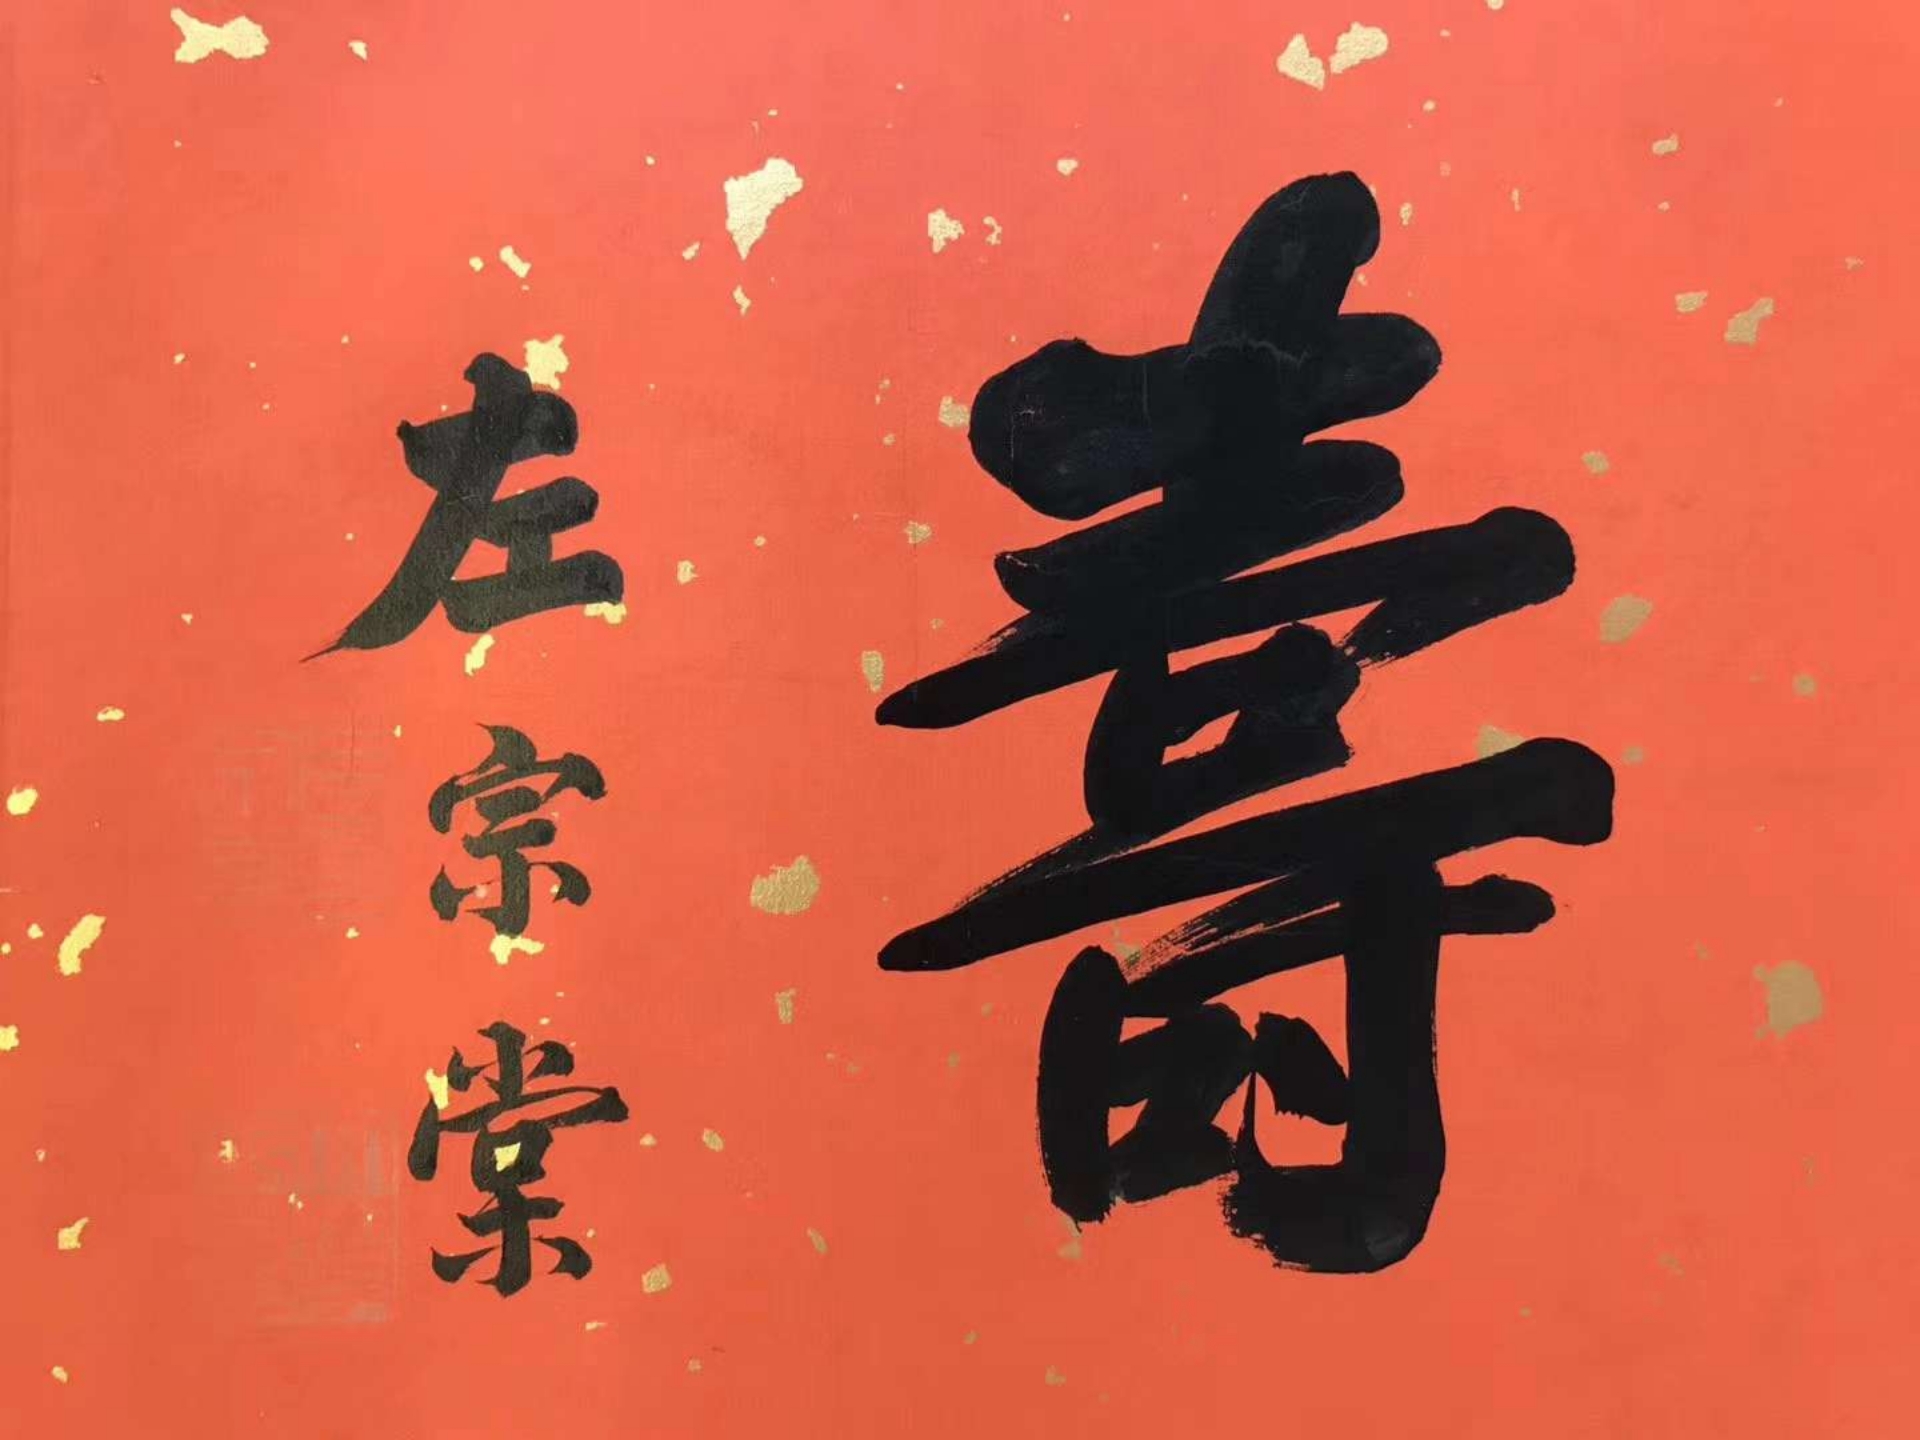 壽
左宗棠